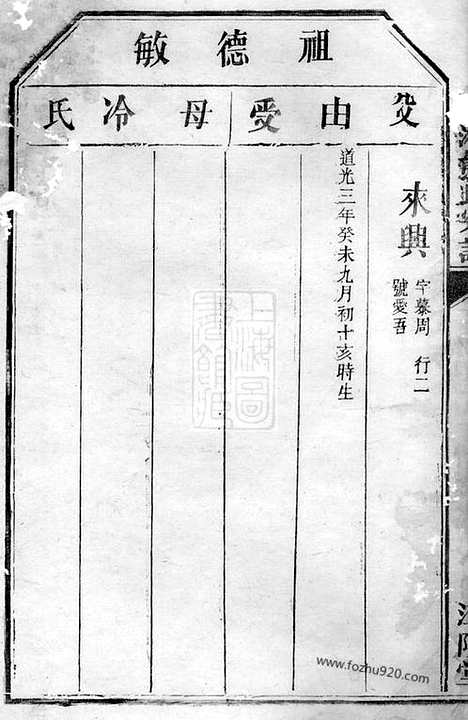 祖德敏
父由受母冷氏
來興
字慕周 行二
號愛吾
道光三年癸未九月初十亥時生
上海圖書館藏
www.fozhu920.com